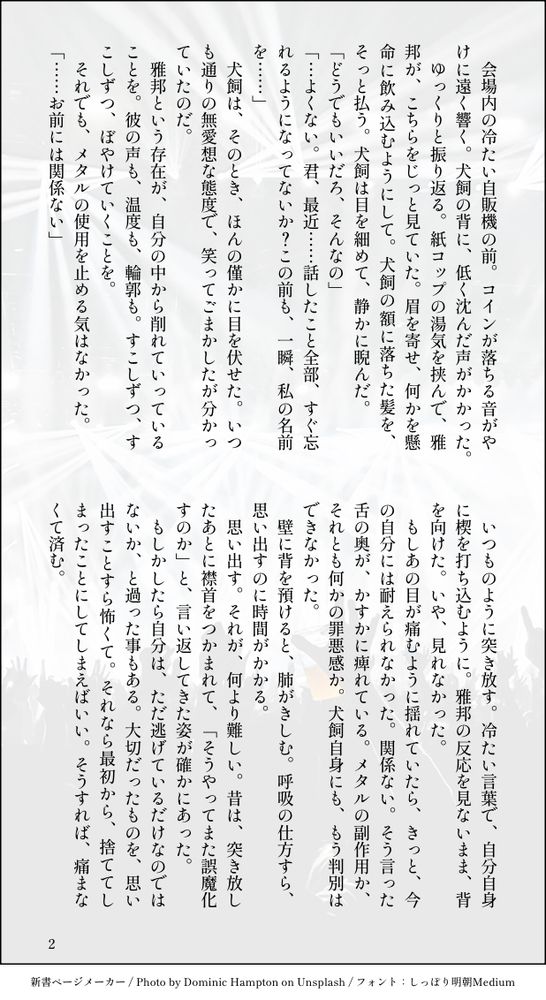 会場内の冷たい自販機の前。コインが落ちる音がや
けに遠く響く。犬飼の背に、低く沈んだ声がかかった。
　ゆっくりと振り返る。紙コップの湯気を挟んで、雅
邦が、こちらをじっと見ていた。眉を寄せ、何かを懸
命に飲み込むようにして。犬飼の額に落ちた髪を、
そっと払う。犬飼は目を細めて、静かに睨んだ。
「どうでもいいだろ、そんなの」
「…よくない。君、最近……話したこと全部、すぐ忘
れるようになってないか?この前も、一瞬、私の名前
を……」
　犬飼は、そのとき、ほんの僅かに目を伏せた。いつ
も通りの無愛想な態度で、笑ってごまかしたが分かっ
ていたのだ。
　雅邦という存在が、自分の中から削れていっている
ことを。彼の声も、温度も、輪郭も。すこしずつ、す
こしずつ、ぼやけていくことを。
　それでも、メタルの使用を止める気はなかった。
「……お前には関係ない」
　いつものように突き放す。冷たい言葉で、自分自身
に楔を打ち込むように。雅邦の反応を見ないまま、背
を向けた。いや、見れなかった。
　もしあの目が痛むように揺れていたら、きっと、今
の自分には耐えられなかった。関係ない。そう言った
舌の奥が、かすかに痺れている。メタルの副作用か、
それとも何かの罪悪感か。犬飼自身にも、もう判別は
できなかった。
　壁に背を預けると、肺がきしむ。呼吸の仕方すら、
思い出すのに時間がかかる。
　思い出す。それが、何より難しい。昔は、突き放し
たあとに襟首をつかまれて、「そうやってまた誤魔化
すのか」と、言い返してきた姿が確かにあった。
　もしかしたら自分は、ただ逃げているだけなのでは
ないか、と過った事もある。大切だったものを、思い
出すことすら怖くて。それなら最初から、捨ててし
まったことにしてしまえばいい。そうすれば、痛まな
くて済む。
2
新書ページメーカー / Photo by Dominic Hampton on Unsplash / フォント：しっぽり明朝Medium